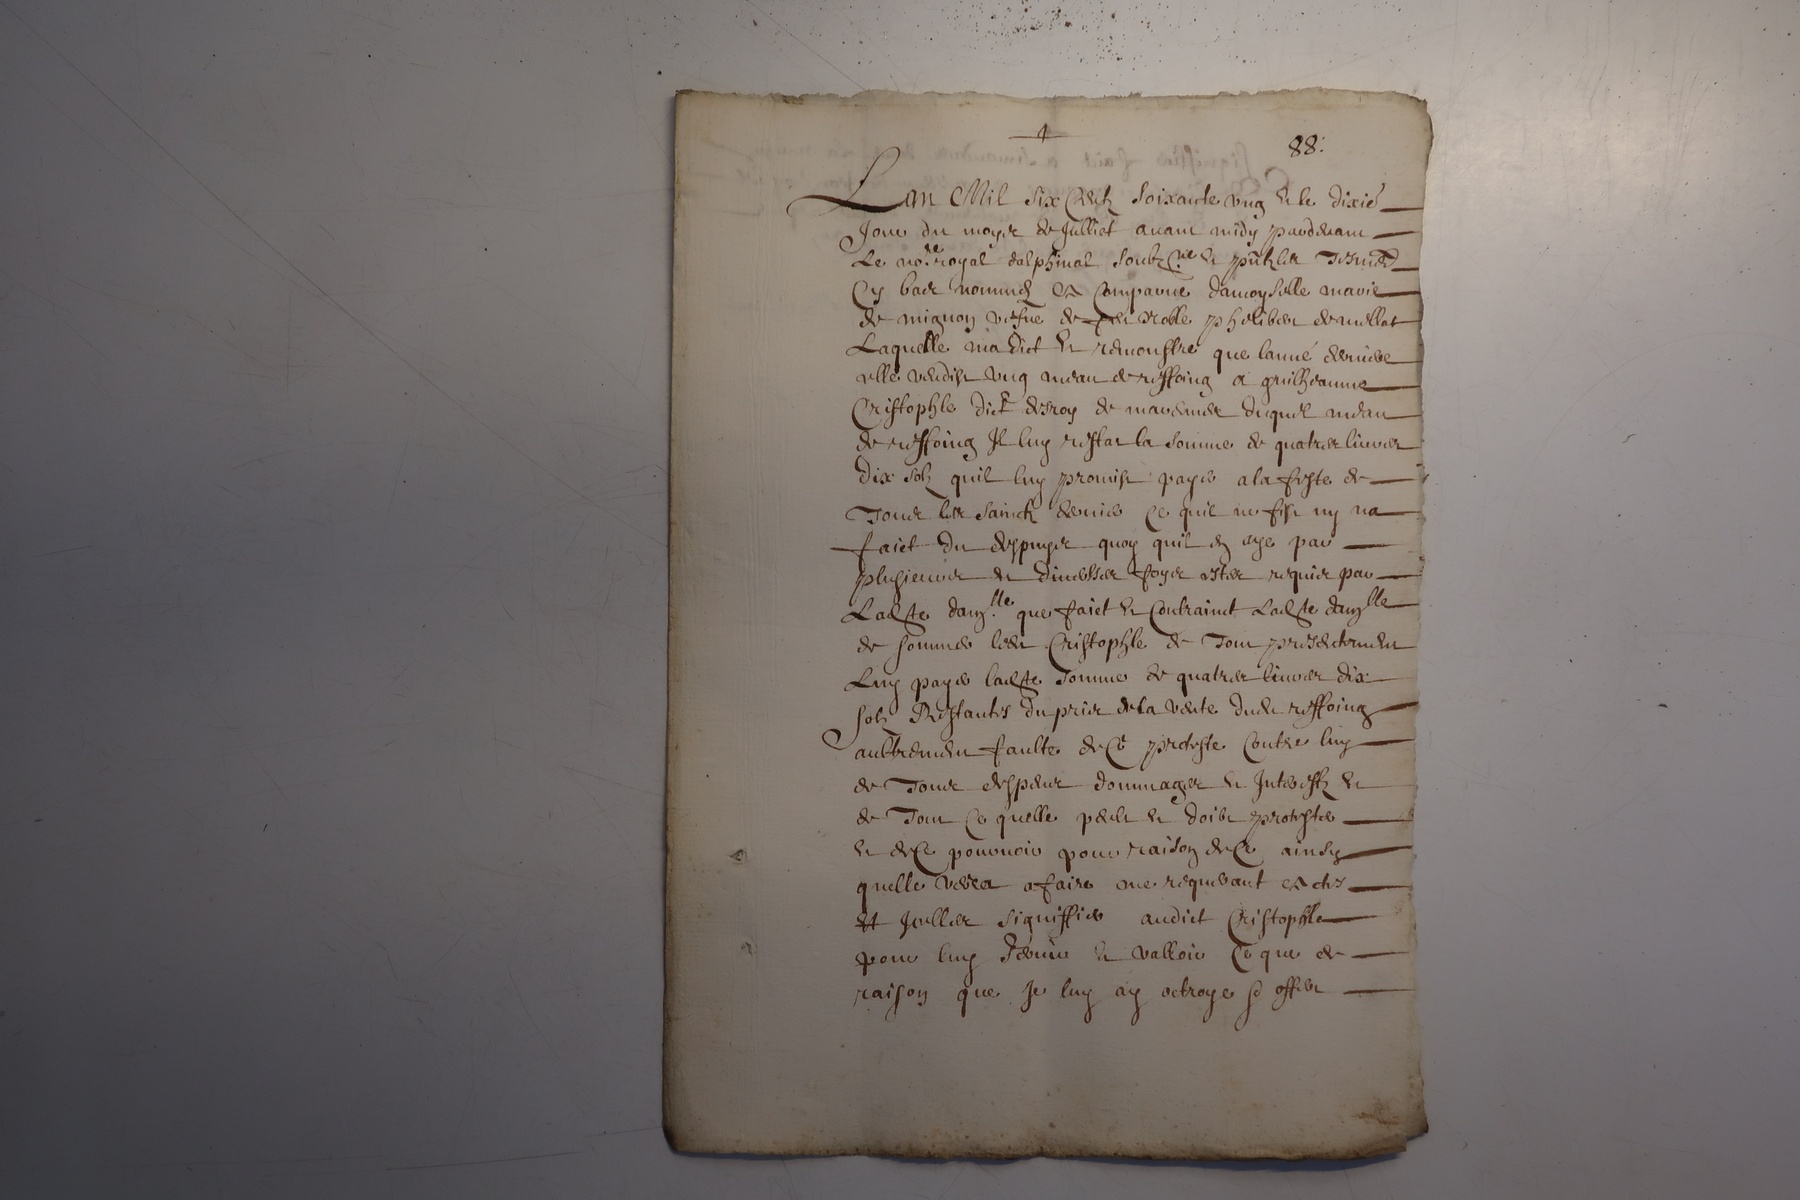 88.
Lan Mil six Centz soixante ung & le dixie
Jour du moys de Julliet avant midy pardevant
Le no.re royal dalphinal soubz.ne & pntz les Tesmoins
Cy bas nommes est Comparue damoyselle marie
de mignon vefve de feu noble phelibert
Laquelle ma dict & remonstre que lanné derniere
elle vendist ung de reffoing a guilheaume
Cristophle dict de duquel
de reffoing Il luy restat la somme de quatres livres
dix solz quil luy promist payer a la feste de
Tous les Sainctz dernier Ce quil ne fist ny na
faict du despuys quoy quil en aye par
plusieurs & diverses foys ester requis par
Ladte damlle que faict & Contrainct Ladte damlle
de sommer ledit Cristophle de Tout presentement
Luy payer ladte somme de quatres livres dix
solz Restants du pris de la vente dudit reffoing
aultrement faulte de Ce proteste Contre luy
de Tous despens dommages & Interestz &
de Tout Ce quelle peult & doibt protester
& de Ce pourvoir pour raison de Ce ainsy
quelle verra a faire me requerant actes
Et Icelles signiffier audict Cristophle
pour luy servir & valloir Ce que de
raison que Je luy ay octroye